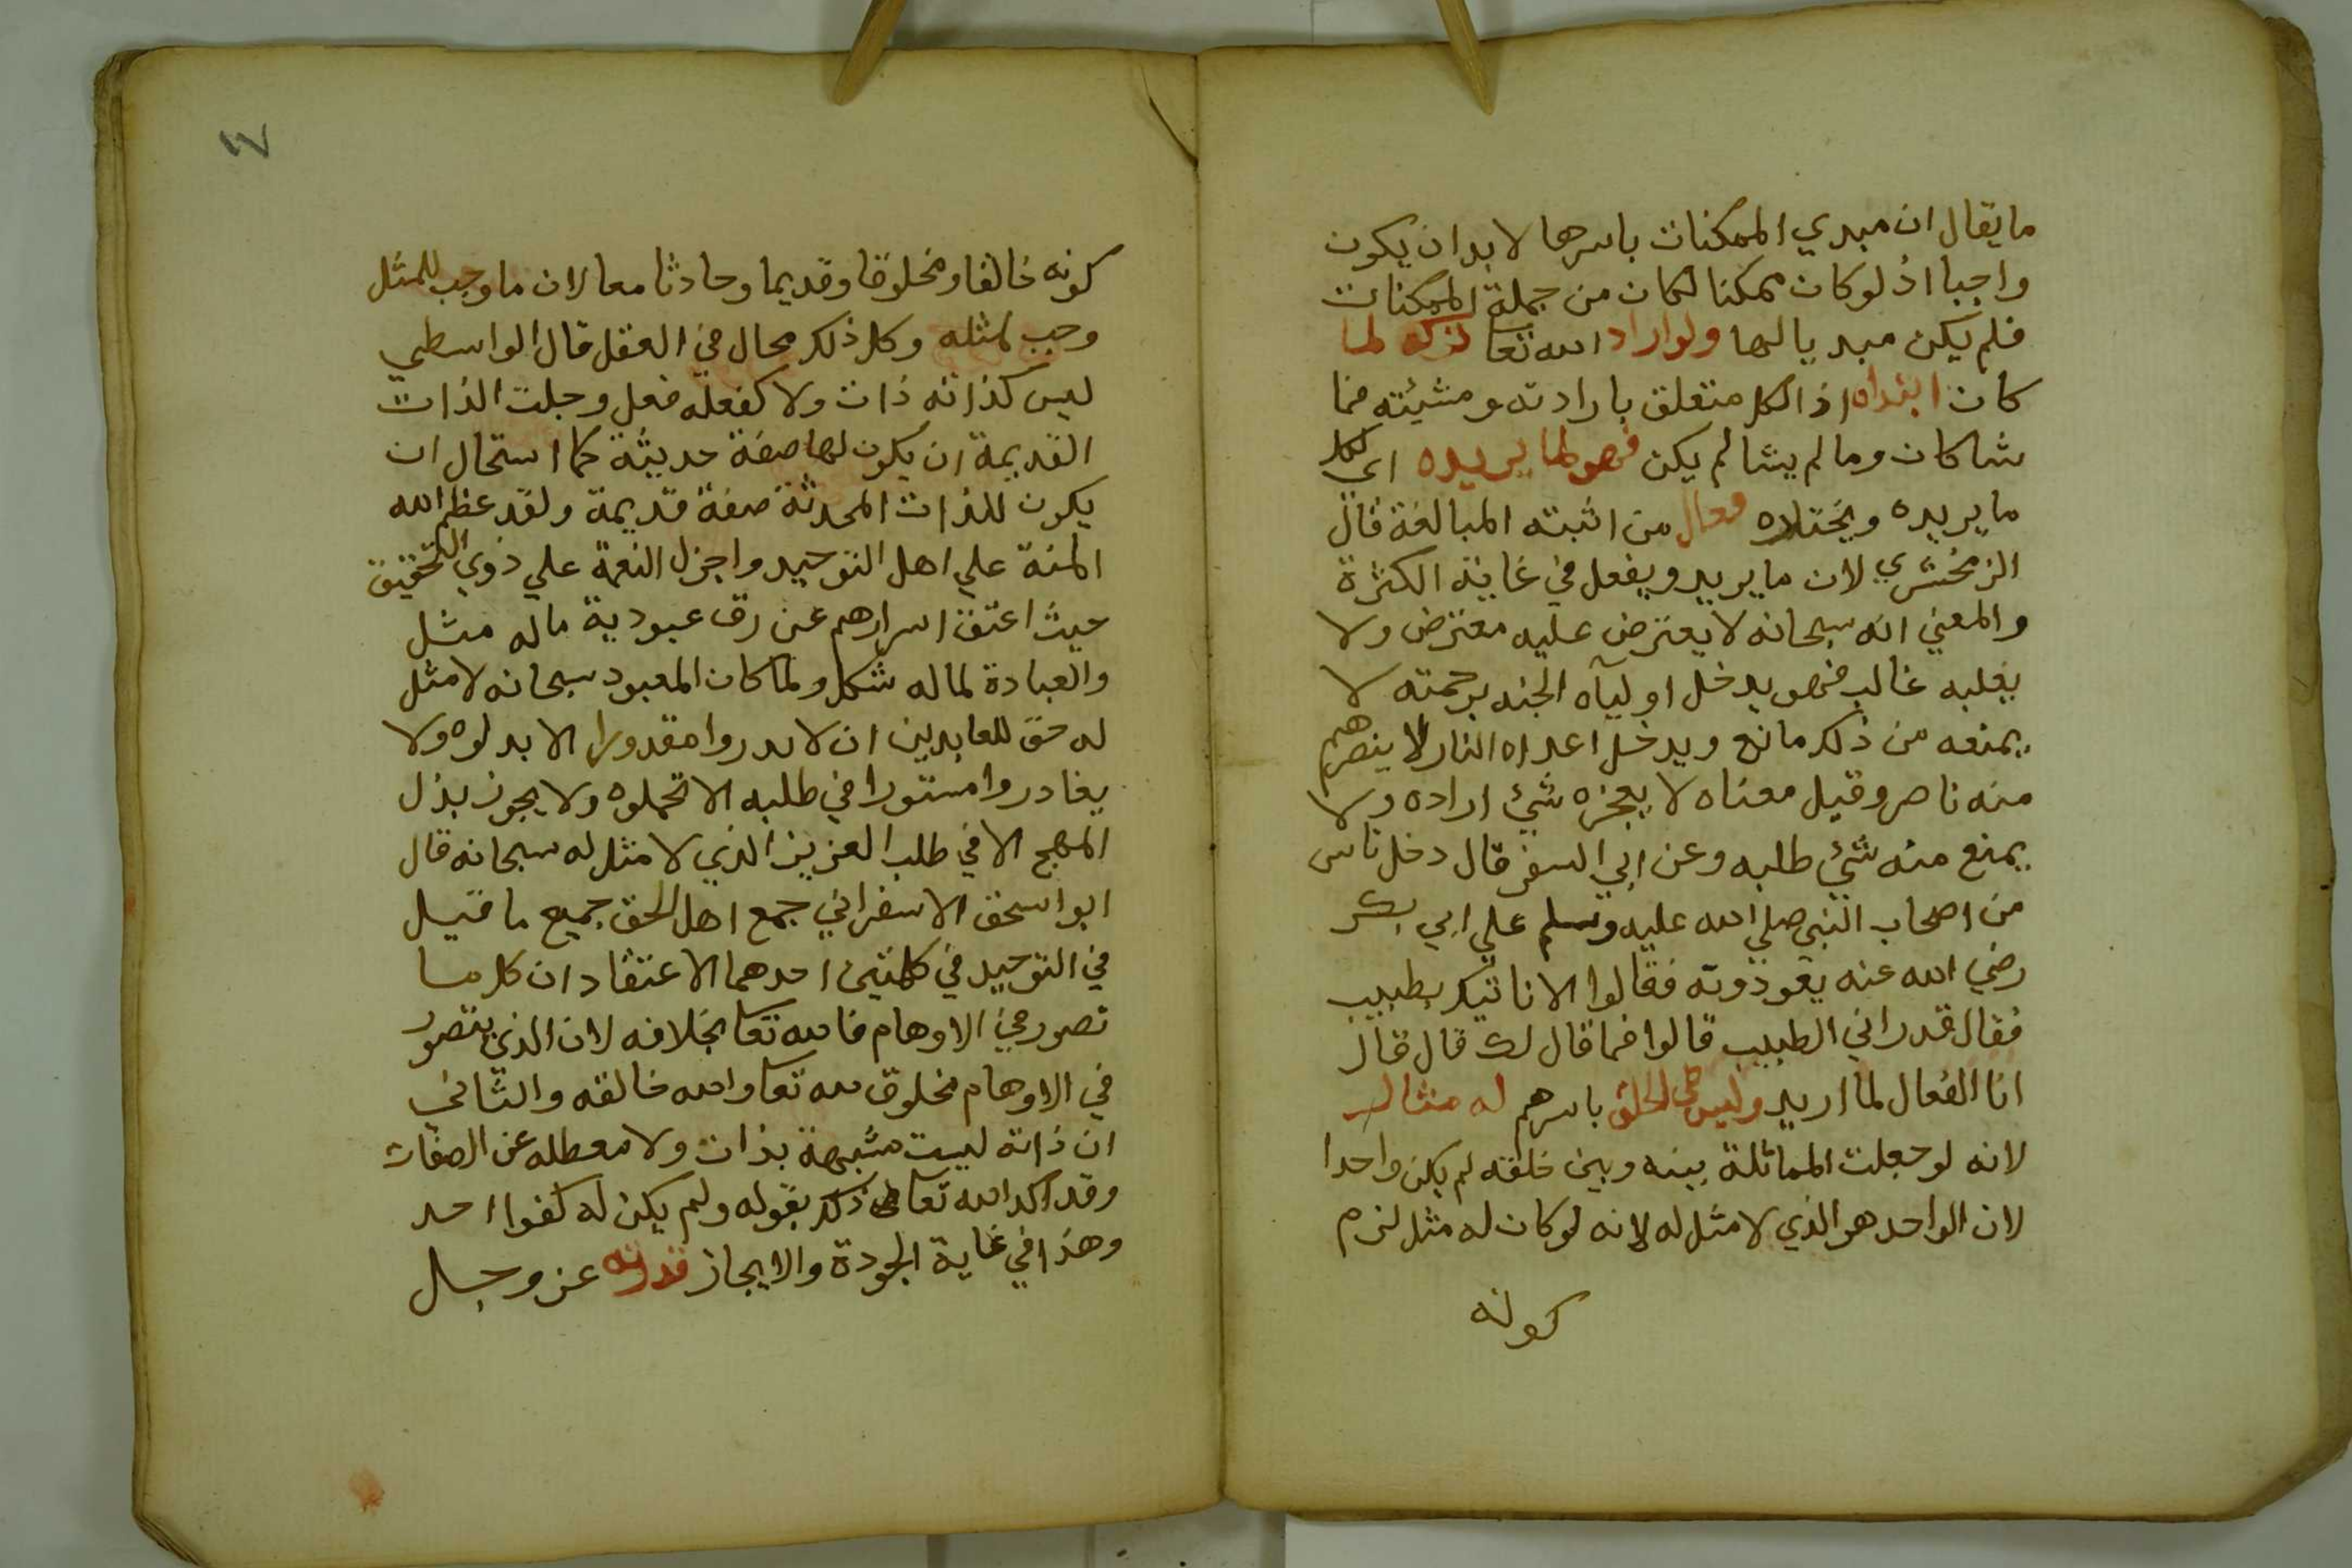 ما يقال ان مبدي الممكنات باسرها لا بد ان يكون
واجبا اذ لو كان ممكنا لكان من جملة الممكنات
فلم يكن مبديا لها ولو اراد الله تعا تركه لما
كان ابتداه اذ الكل متعلق بارادته ومشيئته فما
شا كان وما لم يشا لم يكن فهو لما يريده اي لكل
ما يريده ويختاره فعال من اثبته المبالغة قال
الزمخشري لان ما يريد ويفعل في غاية الكثرة
والمعني انه سبحانه لا يعترض عليه معترض ولا
يغلبه غالب فهو يدخل اوليآه الجنه برحمته لا
يمنعه من ذلك مانع ويدخل اعداه النار لا ينصرهم
منه ناصر وقيل معناه لا يعجزه شئ اراده ولا
يمنع منه شئ طلبه وعن ابي السفر قال دخل ناس
من اصحاب النبي صلي الله عليه وسلم علي ابي بكر
رضي الله عنه يعودونه فقالوا الا ناتيك بطبيب
فقال قد راني الطبيب قالوا فما قال لك قال قال
انا الفعال لما اريد وليس في الخلق باسرهم له مثال
لانه لو جعلت المماثلة بينه وبين خلقه لم يكن واحدا
لان الواحد هو الذي لا مثل له لانه لو كان له مثل لزم
كونه
١٧
كونه خالقا ومخلوقا وقديما وحادثا معا لان ما وجب للمثل
وجب لمثله وكل ذلك محال في العقل قال الواسطي
ليس كذاته ذات ولا كفعله فعل وجلت الذات
القديمة ان يكون لها صفة حديثة كما استحال ان
يكون للذات المحدثة صفة قديمة ولقد عظم الله
المنة علي اهل التوحيد واجزل النعمة علي ذوي التحقيق
حيث اعتق اسرارهم عن رق عبودية ماله مثل
والعبادة لما له شكل ولما كان المعبود سبحانه لا مثل
له حق للعابدين ان لا مقدورا الا بدلوه ولا
يغادروا مستورا في طلبه الا تحملوه ولا يجوز بذل
المهج الا في طلب العزيز الذي لا مثل له سبحانه قال
ابو اسحق الاسفراني جمع اهل الحق جميع ما قيل
في التوحيد في كلمتين احدهما الاعتقاد ان كل ما
تصور في الاوهام فالله تعا بخلافه لان الذي يتصور
في الاوهام مخلوق لله تعا والله خالقه والثاني
ان ذاته ليست مشبهة بذات ولا معطله عن الصفات
وقد اكد الله تعالى ذلك بقوله ولم يكن له كفوا احد
وهذا في غاية الجودة والايجاز قدرته عز وجل